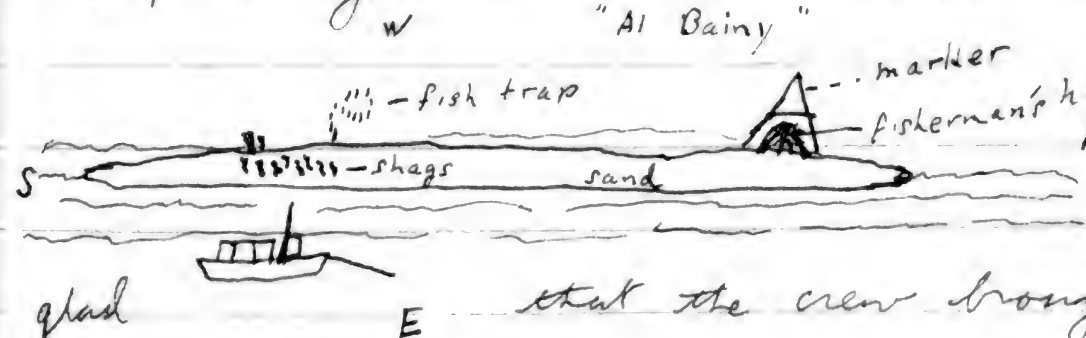 W "Al Bainy"
marker
fish trap
fisherman's h
shags sand
S
glad E that the crew broug